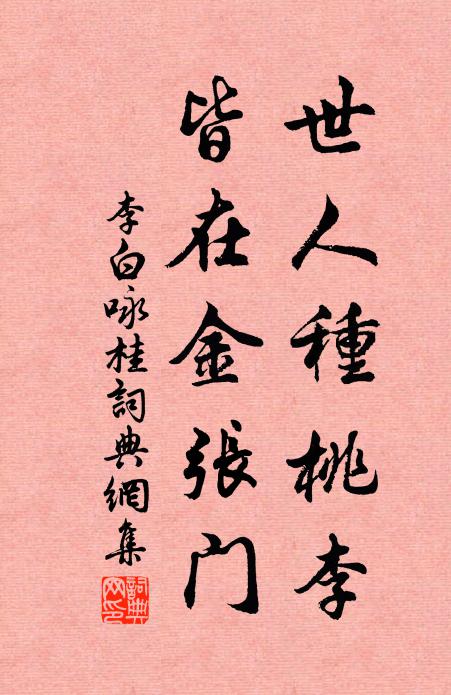 世人種桃李
皆在金張門
李白咏桂詞典網集
詞典网印